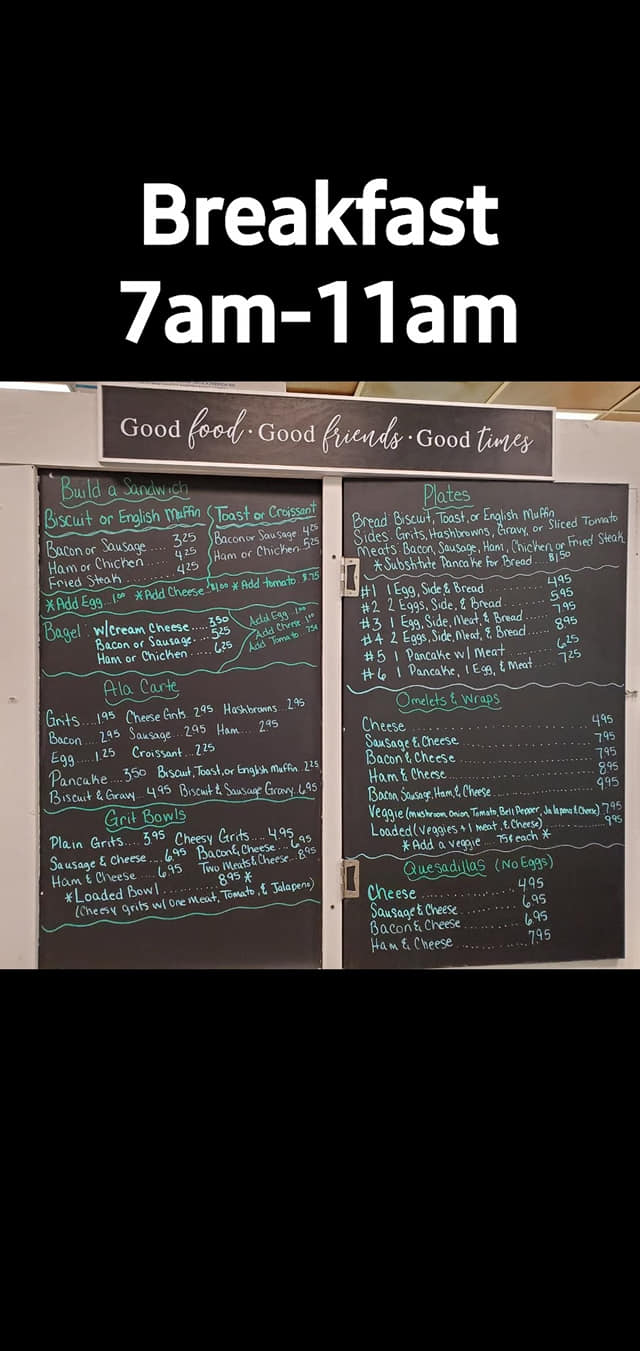 Breakfast
7am-11am
Good food · Good friends · Good times
Build a Sandwich
Biscuit or English Muffin
Bacon or Sausage.... 325
Ham or Chicken..... 425
Fried Steak......... 425
Toast or Croissant
Bacon or Sausage 425
Ham or Chicken... 525
*Add Egg...1.00 *Add Cheese $1.00 *Add tomato $.75
Bagel: w/Cream Cheese..... 350
Bacon or Sausage.. 525
Ham or Chicken..... 625
Add Egg 1.00
Add Cheese 1.00
Add Tomato 75¢
Ala Carte
Grits...195 Cheese Grits. 295 Hashbrowns. 295
Bacon... 295 Sausage... 295 Ham... 295
Egg....125 Croissant... 225
Pancake.... 350 Biscuit, Toast, or English Muffin. 225
Biscuit & Gravy...495 Biscuit & Sausage Gravy. 695
Grit Bowls
Plain Grits.... 395 Cheesy Grits.... 495
Sausage & Cheese... 695 Bacon & Cheese... 695
Ham & Cheese..... 695 Two Meats & Cheese...895
*Loaded Bowl.......... 895 *
(Cheesy grits w/ one meat, Tomato, & Jalapeno)
Plates
Bread: Biscuit, Toast, or English Muffin
Sides: Grits, Hashbrowns, Gravy, or Sliced Tomato
Meats: Bacon, Sausage, Ham, Chicken, or Fried Steak
*Substitute Pancake for Bread... $1.50
#1 1 Egg, Side & Bread.......... 495
#2 2 Eggs, Side, & Bread........ 595
#3 1 Egg, Side, Meat, & Bread...... 795
#4 2 Eggs, Side, Meat, & Bread...... 895
#5 1 Pancake w/ Meat........... 625
#6 1 Pancake, 1 Egg, & Meat..... 725
Omelets & Wraps
Cheese.......................... 495
Sausage & Cheese................ 795
Bacon & Cheese.................. 795
Ham & Cheese.................... 895
Bacon, Sausage, Ham, & Cheese........ 995
Veggie (mushroom, Onion, Tomato, Bell Pepper, Jalapeno & Cheese) 795
Loaded (veggies + 1 meat, & Cheese)............ 995
*Add a veggie.... 75¢ each *
Quesadillas (No Eggs)
Cheese.............. 495
Sausage & Cheese......... 695
Bacon & Cheese........... 695
Ham & Cheese............ 795